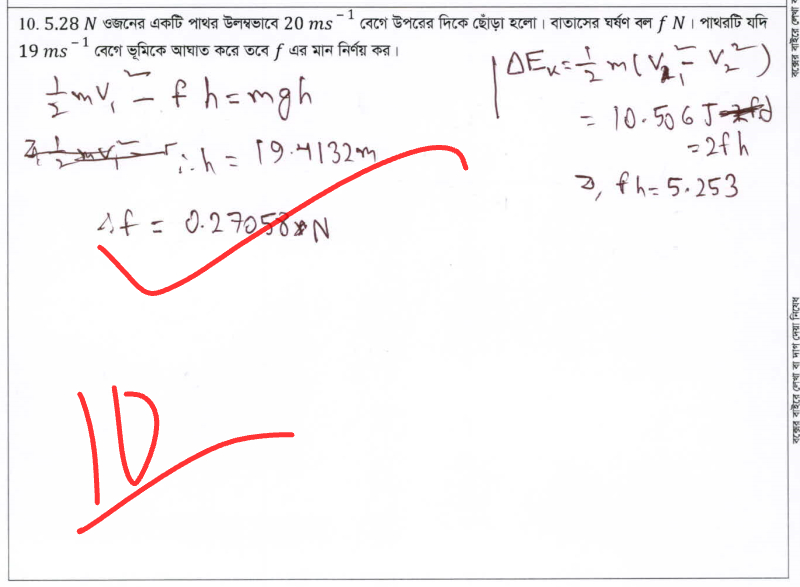 10. 5.28 N ওজনের একটি পাথর উলম্বভাবে 20 ms⁻¹ বেগে উপরের দিকে ছোঁড়া হলো। বাতাসের ঘর্ষণ বল f N। পাথরটি যদি
19 ms⁻¹ বেগে ভূমিকে আঘাত করে তবে f এর মান নির্ণয় কর।
½mv₁² − fh = mgh
∴h = 19.4132m
f = 0.27058 N
ΔEₖ = ½m(v₁² − v₂²)
= 10.506 J
= 2fh
⇒, fh = 5.253
10
বক্সের বাইরে লেখা বা দাগ দেয়া নিষেধ